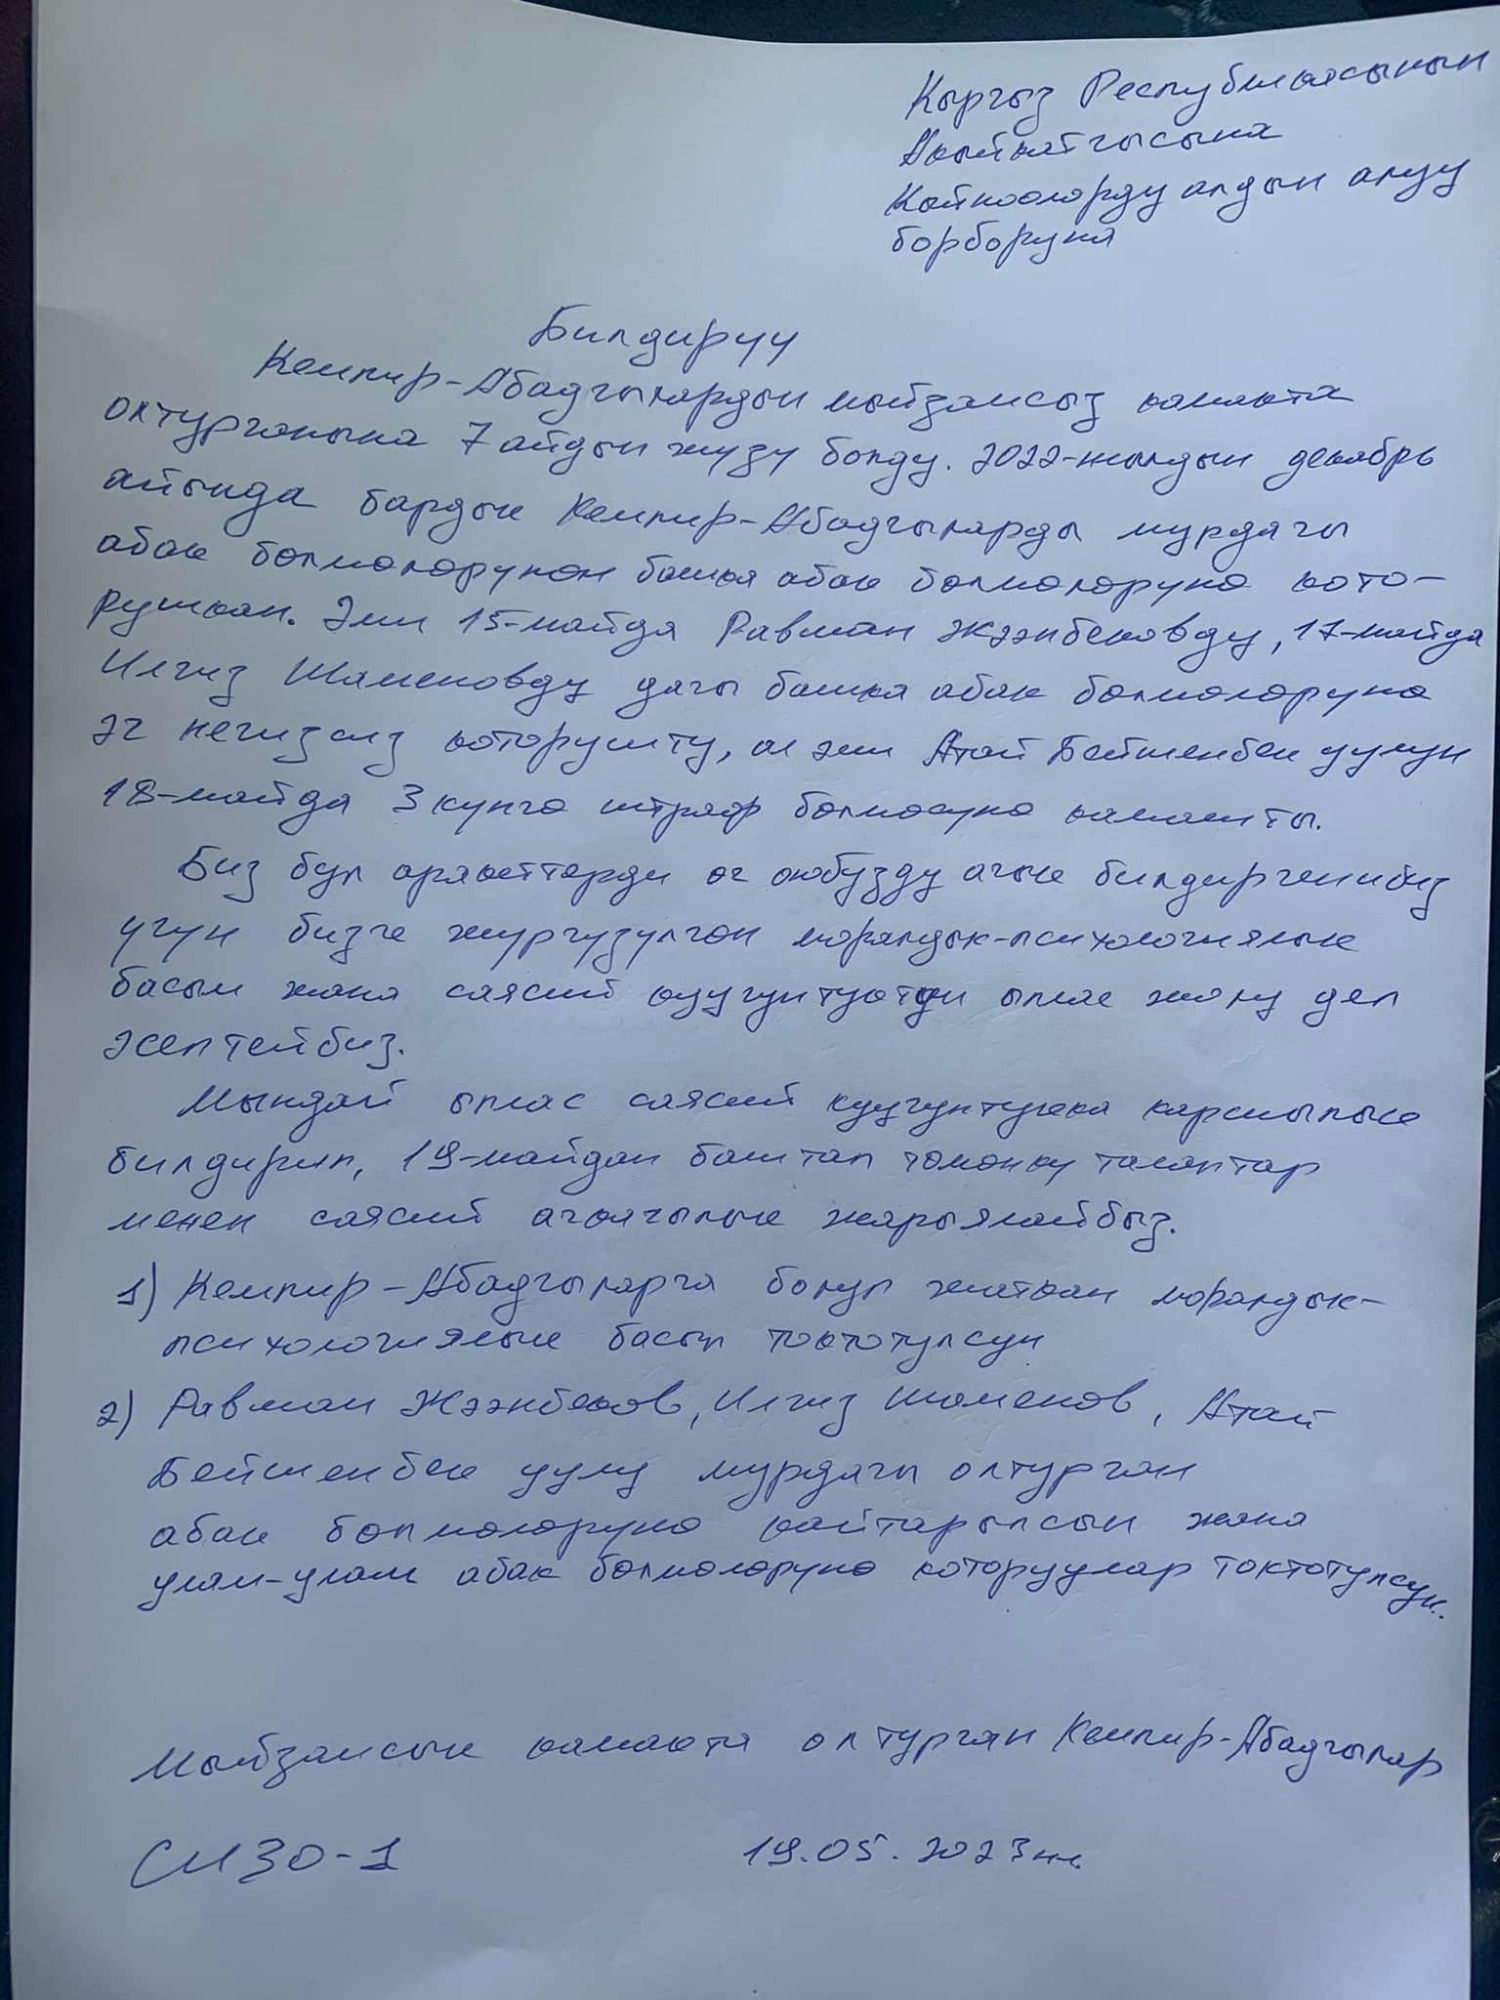 Кыргыз Республикасынын
Акыйкатчысына
Кыйноолорду алдын алуу
борборуна
Билдирүү
Кемпир-Абадчылардын мыйзамсыз камакта
олтурганына 7 айдын жүзү болду. 2022-жылдын декабрь
айында бардык Кемпир-Абадчыларды мурдагы
абак бөлмөлөрүнөн башка абак бөлмөлөрүнө кото-
рушкан. Эми 15-майда Равшан Жээнбековду, 17-майда
Илгиз Шаменовду дагы башка абак бөлмөлөрүнө
эч негизсиз которушту, ал эми Атай Бейшенбек уулун
18-майда 3 күнгө штраф бөлмөсүнө камашты.
Биз бул аракеттерди өз оюбузду ачык билдиргенибиз
үчүн бизге жүргүзүлгөн моралдык-психологиялык
басым жана саясий куугунтуктун ыплас жолу деп
эсептейбиз.
Мындай ыплас саясий куугунтукка каршылык
билдирип, 19-майдан баштап төмөнкү талаптар
менен саясий ачкачылык жарыялайбыз.
1) Кемпир-Абадчыларга болуп жаткан моралдык-
психологиялык басым токтотулсун
2) Равшан Жээнбеков, Илгиз Шаменов, Атай
Бейшенбек уулу мурдагы олтурган
абак бөлмөлөрүнө кайтарылсын жана
улам-улам абак бөлмөлөрүнө которуулар токтотулсун.
Мыйзамсыз камакта олтурган Кемпир-Абадчылар
СИЗО-1 19.05.2023ж.